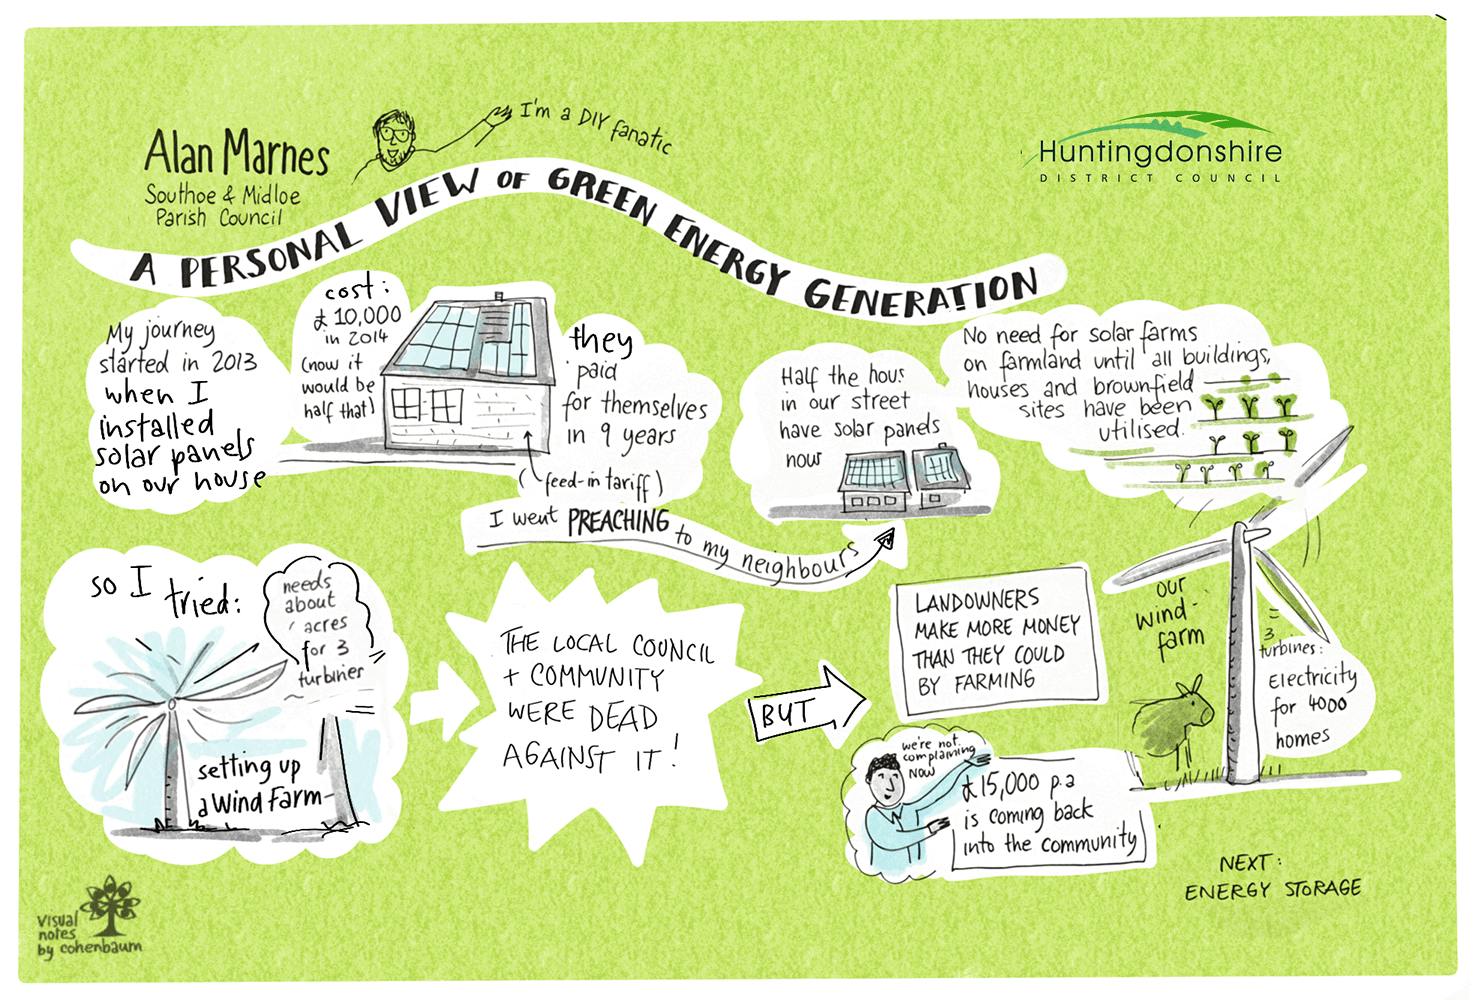 I'm a DIY fanatic
Alan Marnes
Southoe & Midloe
Parish Council
Huntingdonshire
DISTRICT COUNCIL
A PERSONAL VIEW OF GREEN ENERGY GENERATION
My journey
started in 2013
when I
installed
solar panels
on our house
cost:
£10,000
in 2014
(now it
would be
half that)
they
paid
for themselves
in 9 years
(feed-in tariff)
I went PREACHING to my neighbours
Half the hous
in our street
have solar panels
now
No need for solar farms
on farmland until all buildings,
houses and brownfield
sites have been
utilised.
so I tried:
needs
about
acres
for 3
turbines
setting up
a Wind Farm-
THE LOCAL COUNCIL
+ COMMUNITY
WERE DEAD
AGAINST IT!
BUT
LANDOWNERS
MAKE MORE MONEY
THAN THEY COULD
BY FARMING
we're not
complaining
NOW
£15,000 p.a
is coming back
into the community
our
wind-
farm
=
3
turbines:
Electricity
for 4000
homes
NEXT:
ENERGY STORAGE
visual
notes
by cohenbaum